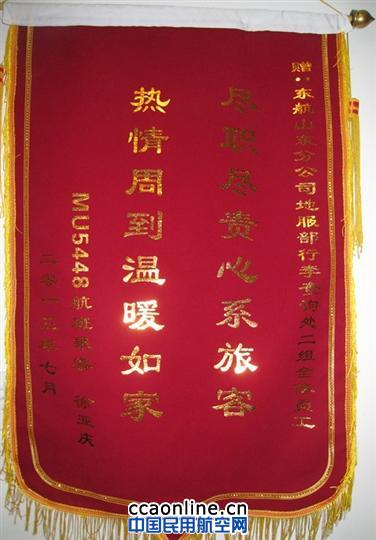 赠：东航山东分公司地服部行李查询处二组全体员工
尽职尽责心系旅客
热情周到温暖如家
MU5448航班旅客 徐亚庆
二零一三年七月
ccaonline.cn
中国民用航空网